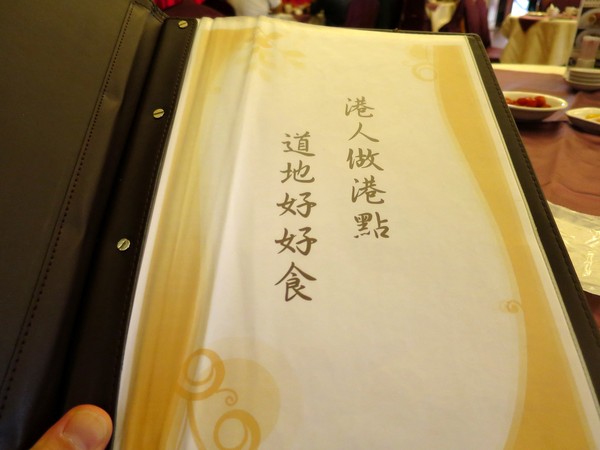 港人做港點
道地好好食